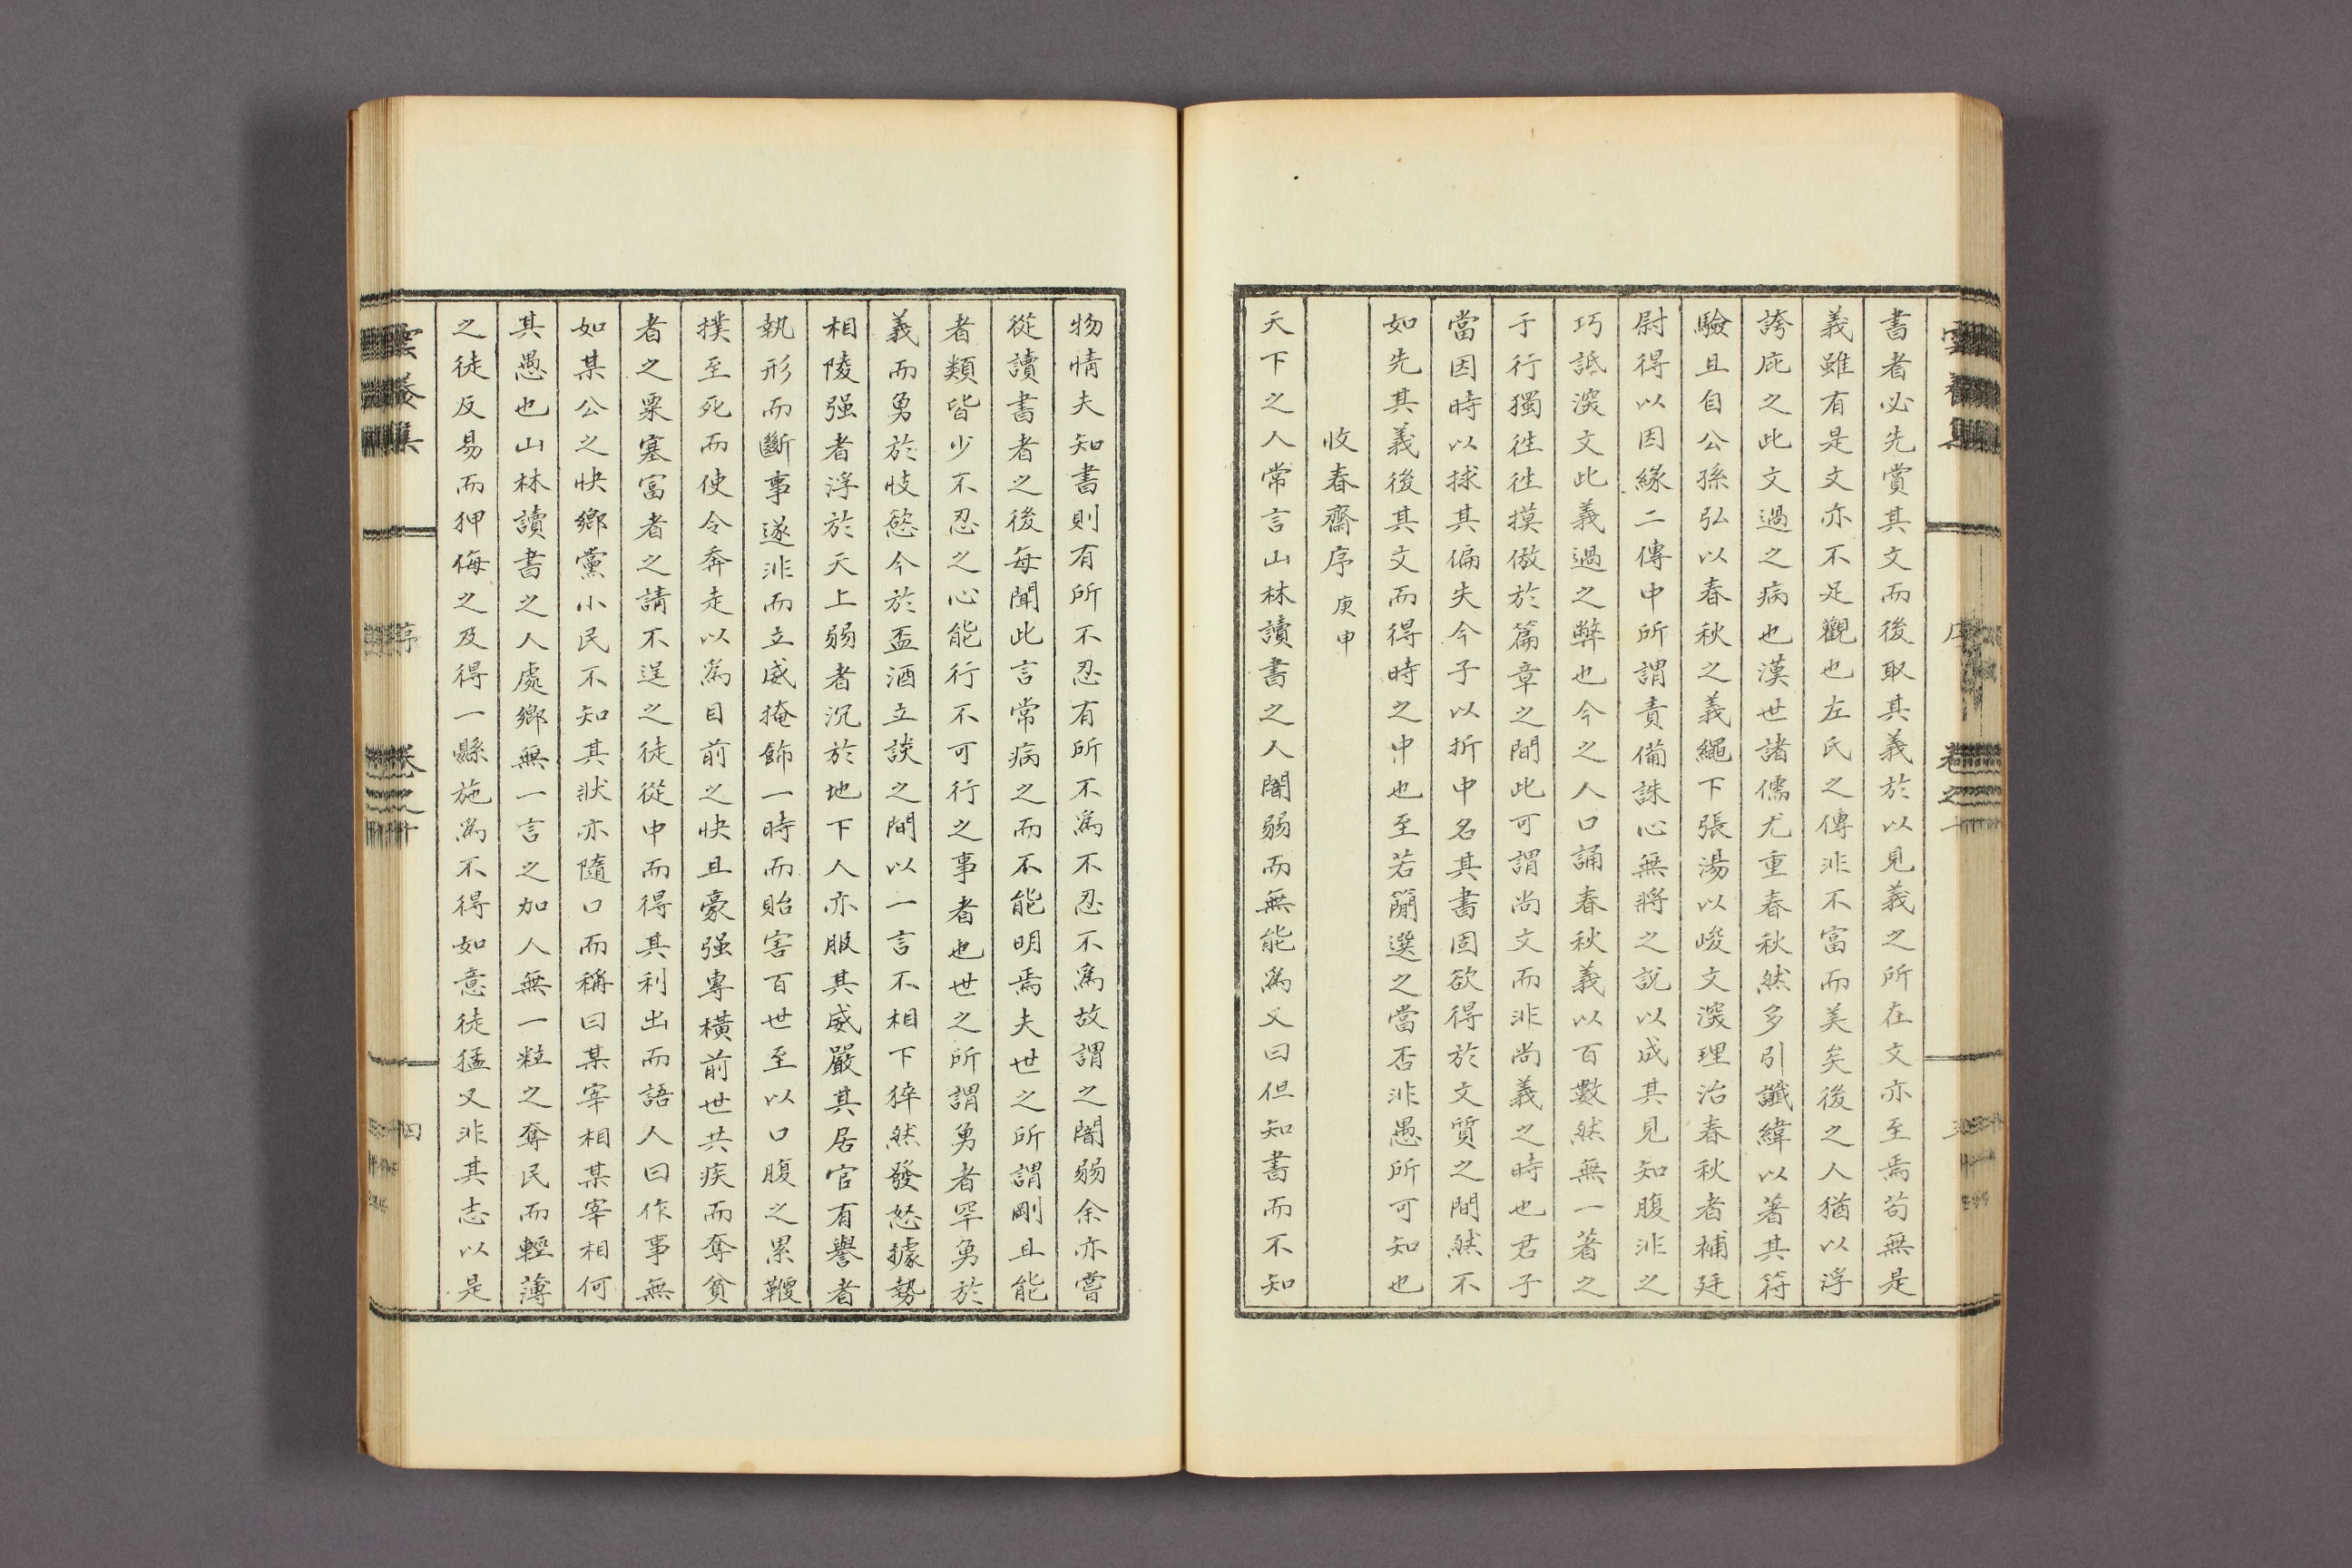 書者必先賞其文而後取其義於以見義之所在文亦至焉苟無是
義雖有是文亦不足觀也左氏之傳非不富而美矣後之人猶以浮
誇庇之此文過之病也漢世諸儒尤重春秋然多引讖緯以著其符
驗且自公孫弘以春秋之義繩下張湯以峻文深理治春秋者補廷
尉得以因緣二傳中所謂責備誅心無將之說以成其見知腹非之
巧詆深文此義過之弊也今之人口誦春秋義以百數然無一著之
于行獨徃徃摸倣於篇章之間此可謂尚文而非尚義之時也君子
當因時以捄其偏失今子以折中名其書固欲得於文質之間然不
如先其義後其文而得時之中也至若簡選之當否非愚所可知也
收春齋序 庚申
天下之人常言山林讀書之人闇弱而無能爲又曰但知書而不知
物情夫知書則有所不忍有所不爲不忍不爲故謂之闇弱余亦嘗
從讀書者之後每聞此言常病之而不能明焉夫世之所謂剛且能
者類皆少不忍之心能行不可行之事者也世之所謂勇者罕勇於
義而勇於忮慾今於盃酒立談之間以一言不相下猝然發怒據勢
相陵强者浮於天上弱者沉於地下人亦服其威嚴其居官有譽者
執形而斷事遂非而立威掩飾一時而貽害百世至以口腹之累鞭
撲至死而使令奔走以爲目前之快且豪强專橫前世共疾而奪貧
者之粟塞富者之請不逞之徒從中而得其利出而語人曰作事無
如某公之快鄉黨小民不知其狀亦隨口而稱曰某宰相某宰相何
其愚也山林讀書之人處鄉無一言之加人無一粒之奪民而輕薄
之徒反易而狎侮之及得一縣施爲不得如意徒猛又非其志以是
序
四